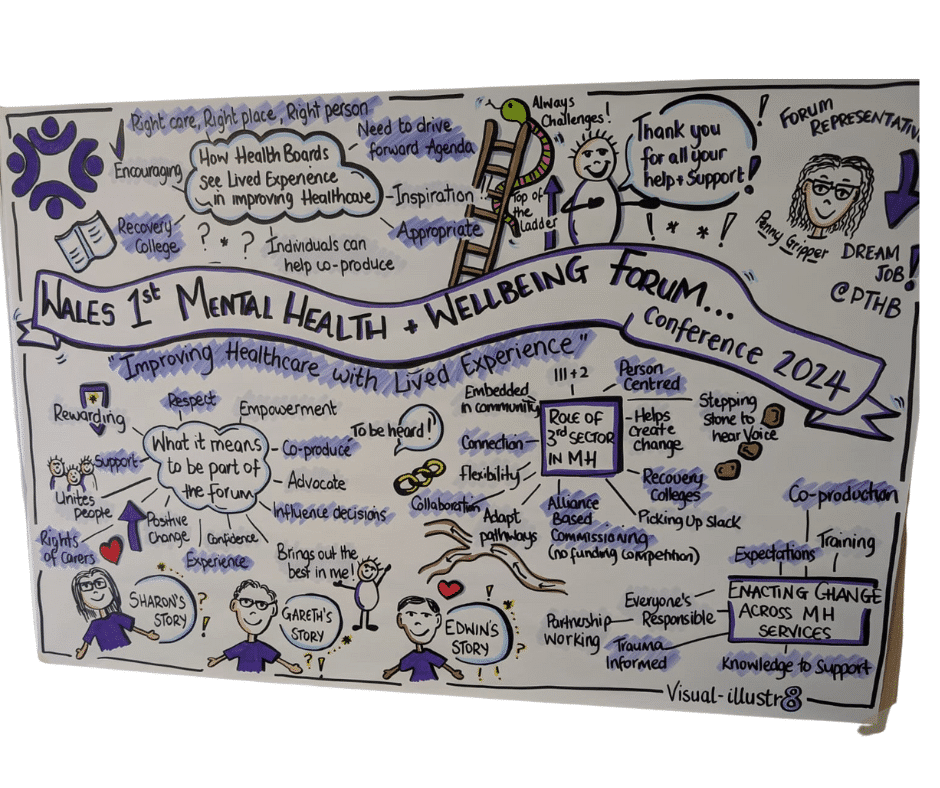 Right care, Right place, Right person
Encouraging
How Health Boards
see Lived Experience
in improving Healthcare
Need to drive
forward Agenda
Inspiration
Appropriate
Recovery
College
? * ?
Individuals can
help co-produce
Always
Challenges!
Top of
the
Ladder
Thank you
for all your
help + Support!
! * * !
FORUM
REPRESENTATIV
Penny Gripper
DREAM
JOB!
@PTHB
WALES 1st MENTAL HEALTH + WELLBEING FORUM...
Conference 2024
"Improving Healthcare with Lived Experience"
Rewarding
Respect
Empowerment
What it means
to be part of
the Forum
Co-produce
Support
Advocate
Unites
people
Influence decisions
Rights
of carers
Positive
Change
Confidence
Experience
Brings out the
best in me!
To be heard!
SHARON'S
STORY
GARETH'S
STORY
EDWIN'S
STORY
III + 2
Embedded
in community
Person
Centred
ROLE OF
3rd SECTOR
IN MH
Connection
Helps
create
change
Stepping
stone to
hear Voice
Flexibility
Recovery
Colleges
Collaboration
Adapt
pathways
Alliance
Based
Commissioning
(no funding competition)
Picking up slack
Co-production
Expectations
Training
ENACTING CHANGE
ACROSS MH
SERVICES
Everyone's
Responsible
Partnership
Working
Trauma
Informed
Knowledge to Support
Visual-illustr8